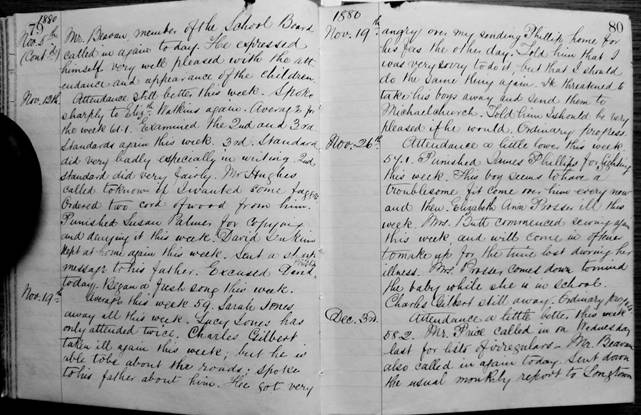 79
1880
Nov. 5th
(Cont'd)
Mr. Beavan, member of the School Board
called in again today. He expressed
himself very well pleased with the att-
endance and appearance of the children
Nov. 12th
Attendance still better this week. Spoke
sharply to Watkins again. Average for
the week 61.1. Examined the 2nd and 3rd
Standards again this week. 3rd Standard
did very badly especially in writing. 2nd
standard did very fairly. Mr Hughes
called to know if I wanted some
Ordered two cord of wood from him.
Punished Susan Palmer for copying
and denying it this week. David Jenkins
kept at home again this week. Sent a
message to his father. Excused
today. Began a fresh song this week.
Nov. 19th
Average this week 59. Sarah Jones
away all this week. Lucy Jones has
only attended twice. Charles Gilbert
taken ill again this week; but he is
able to be about the roads; spoke
to his father about him. He got very
80
1880
Nov. 19th
angry over my sending Phillip home for
his fees the other day. Told him that I
was very sorry to do it, but that I should
do the same thing again. He threatened to
take his boys away and send them to
Michaelchurch. Told him I should be very
pleased if he would. Ordinary progress.
Nov. 26th
Attendance a little lower this week
57.1. Punished James Phillips for fighting
this week. This boy seems to have a
troublesome fit come over him every now
and then. Elizabeth Ann Prosser ill this
week. Mrs. Butt commenced sewing again
this week and will come in oftener
to make up for the time lost during her
illness. Mrs. Prosser comes down to mind
the baby while she is in school.
Charles Gilbert still away. Ordinary
Dec. 3rd
Attendance a little better this week
58.2. Mr. Price called in on Wednesday
last for lists of irregulars. Mr. Beavan
also called in again today. Sent down
the usual monthly report to Longtown